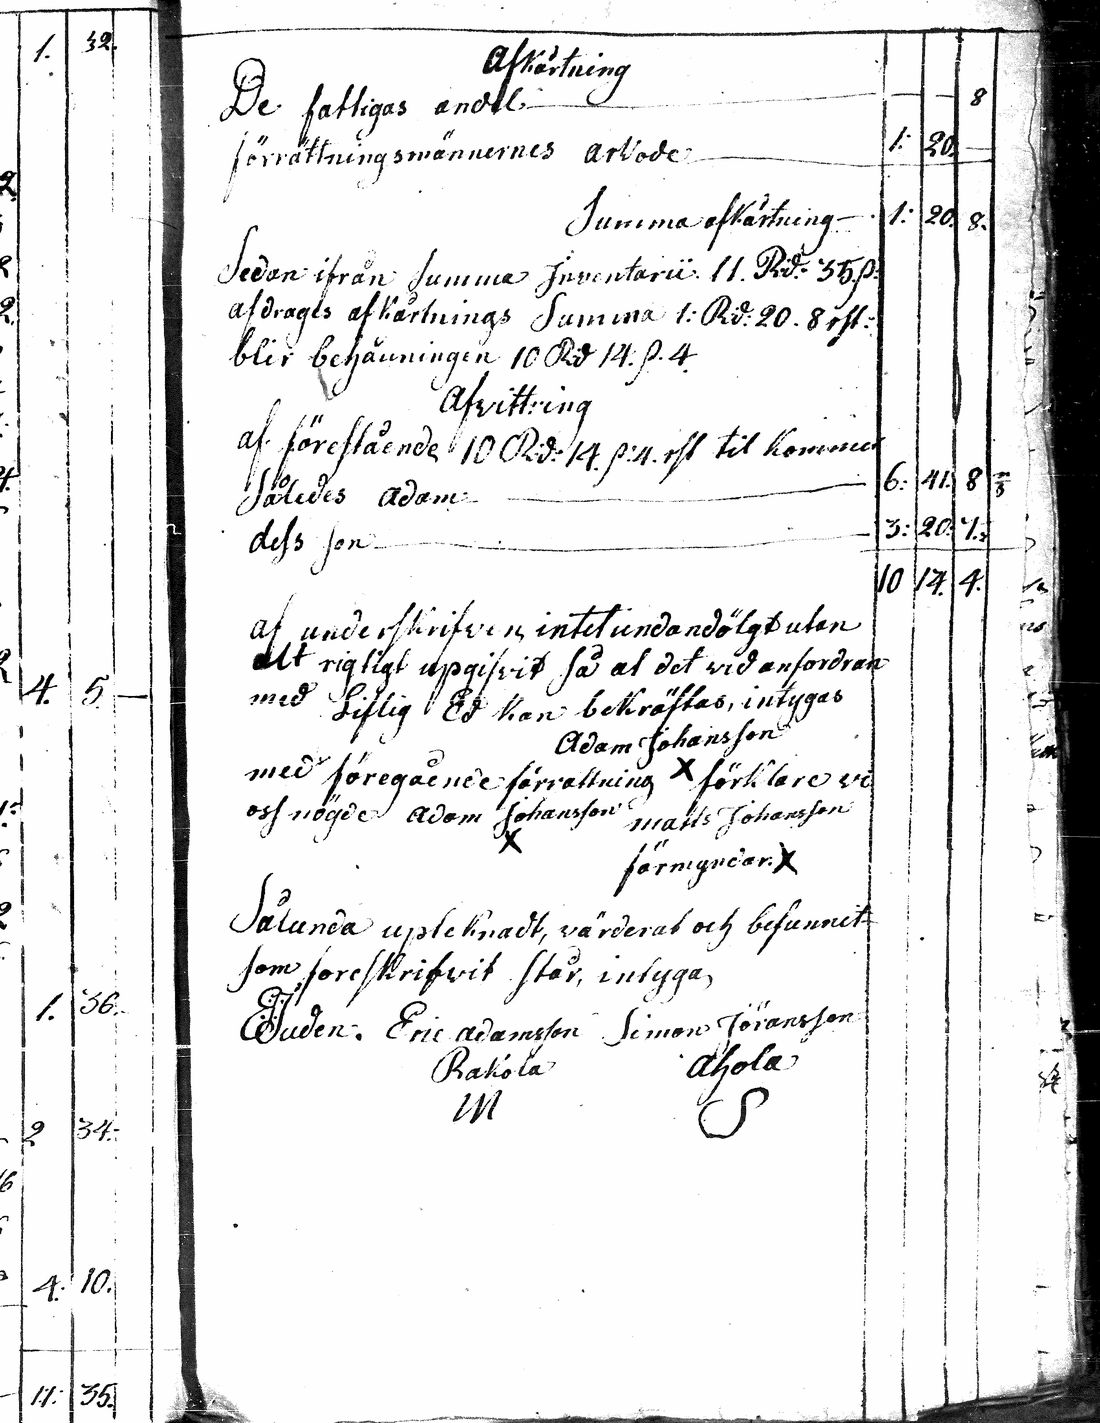 1. 32.
4. 5.
1. 36.
2 34.
4. 10.
11. 35.
Afkårtning
De fattigas andel. 8
förrättningsmännernes arvode 1: 20.
Summa afkårtning 1: 20. 8.
Sedan ifrån Summa Inventarii 11. Rd: 35 ß:
afdragts afkårtnings Summa 1: Rd: 20. 8 rst:
blir behåuningen 10 Rd 14. ß. 4.
Afvittring
af förestående 10 Rd: 14. ß: 4. rst til kommer
Således Adam 6: 41. 8
dess son 3: 20. 7.
10 14. 4.
af underskrifven intet undandölgt utan
alt rigtigt upgifvit så at det vid anfordran
med Liflig Ed kan bekräftas, intygas
Adam Johansson
X
med föregående förrattning förklare vi
oss nögde Adam Johansson Matts Johansson
X
förmyndar. X
Sålunda upteknadt, värderat och befunnit
som foreskrifvit står, intyga,
Eric Adamsson Simon Jöransson
Rakola Ahola
M S